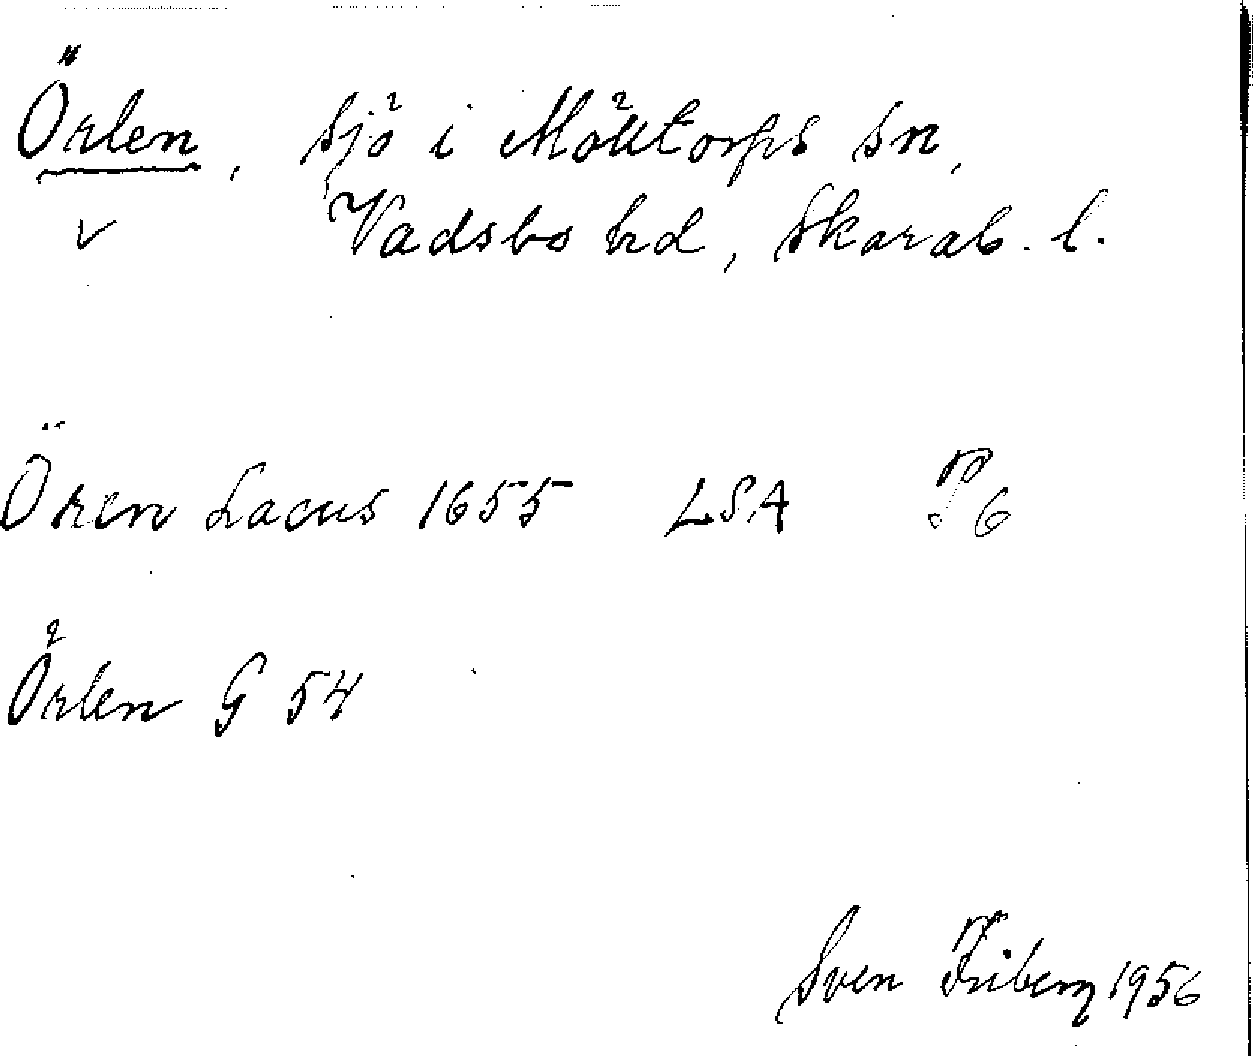 Örlen, sjö i Mölltorps sn,
v Vadsbo hd, Skarab. l.
Ören Lacus 1655 LSA P6
Örlen G 54
Sven Friberg 1956